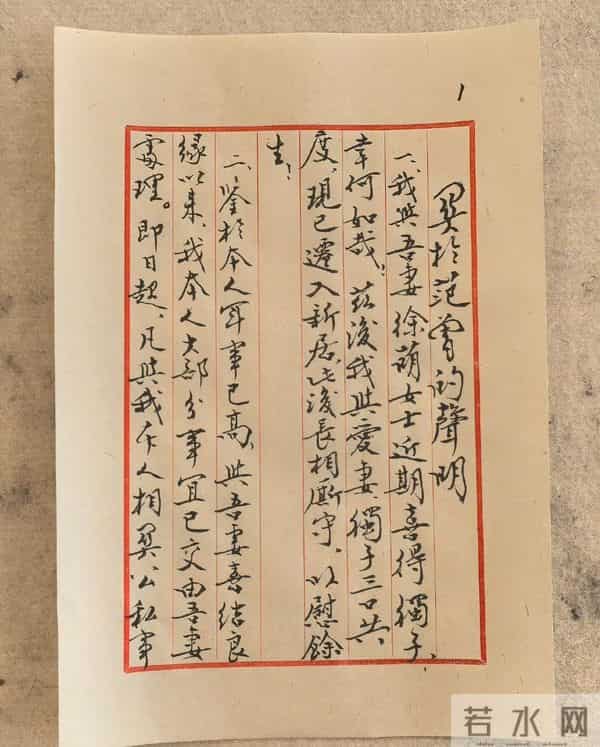 1
关於范曾的聲明
一、我與吾妻徐萌女士近期喜得獨子,
幸何如哉!茲後我與愛妻、獨子三口共
度,現已遷入新居,此後長相厮守,以慰餘
生!
二、鉴於本人年事已高,與吾妻喜结良
緣以来,我本人大部分事宜已交由吾妻
處理。即日起,凡與我本人相关公私事
若水网